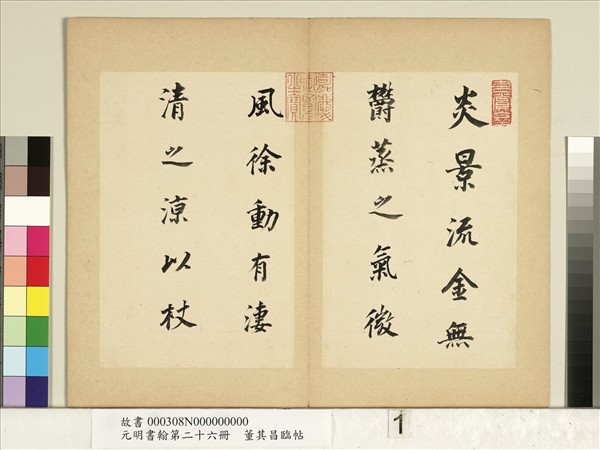 炎景流金無
欝蒸之氣微
風徐動有淒
清之涼以杖
故書 000308N000000000
元明書翰第二十六冊 董其昌臨帖
1